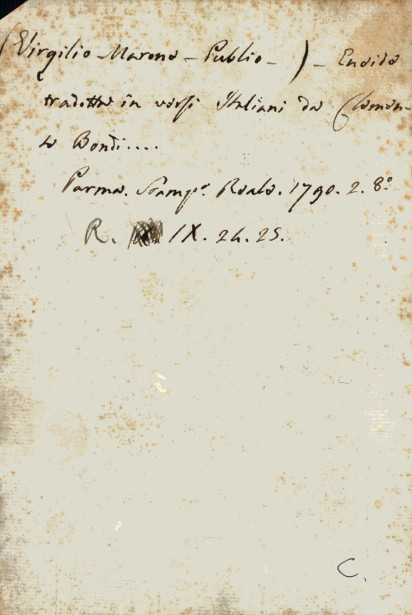 (Virgilio - Marone - Publio - ) - Eneide
tradotta in versi Italiani da Clemen-
te Bondi....
Parma. Stamp.ª Reale. 1790. 2. 8.º
R. IX. 24. 25.
C.